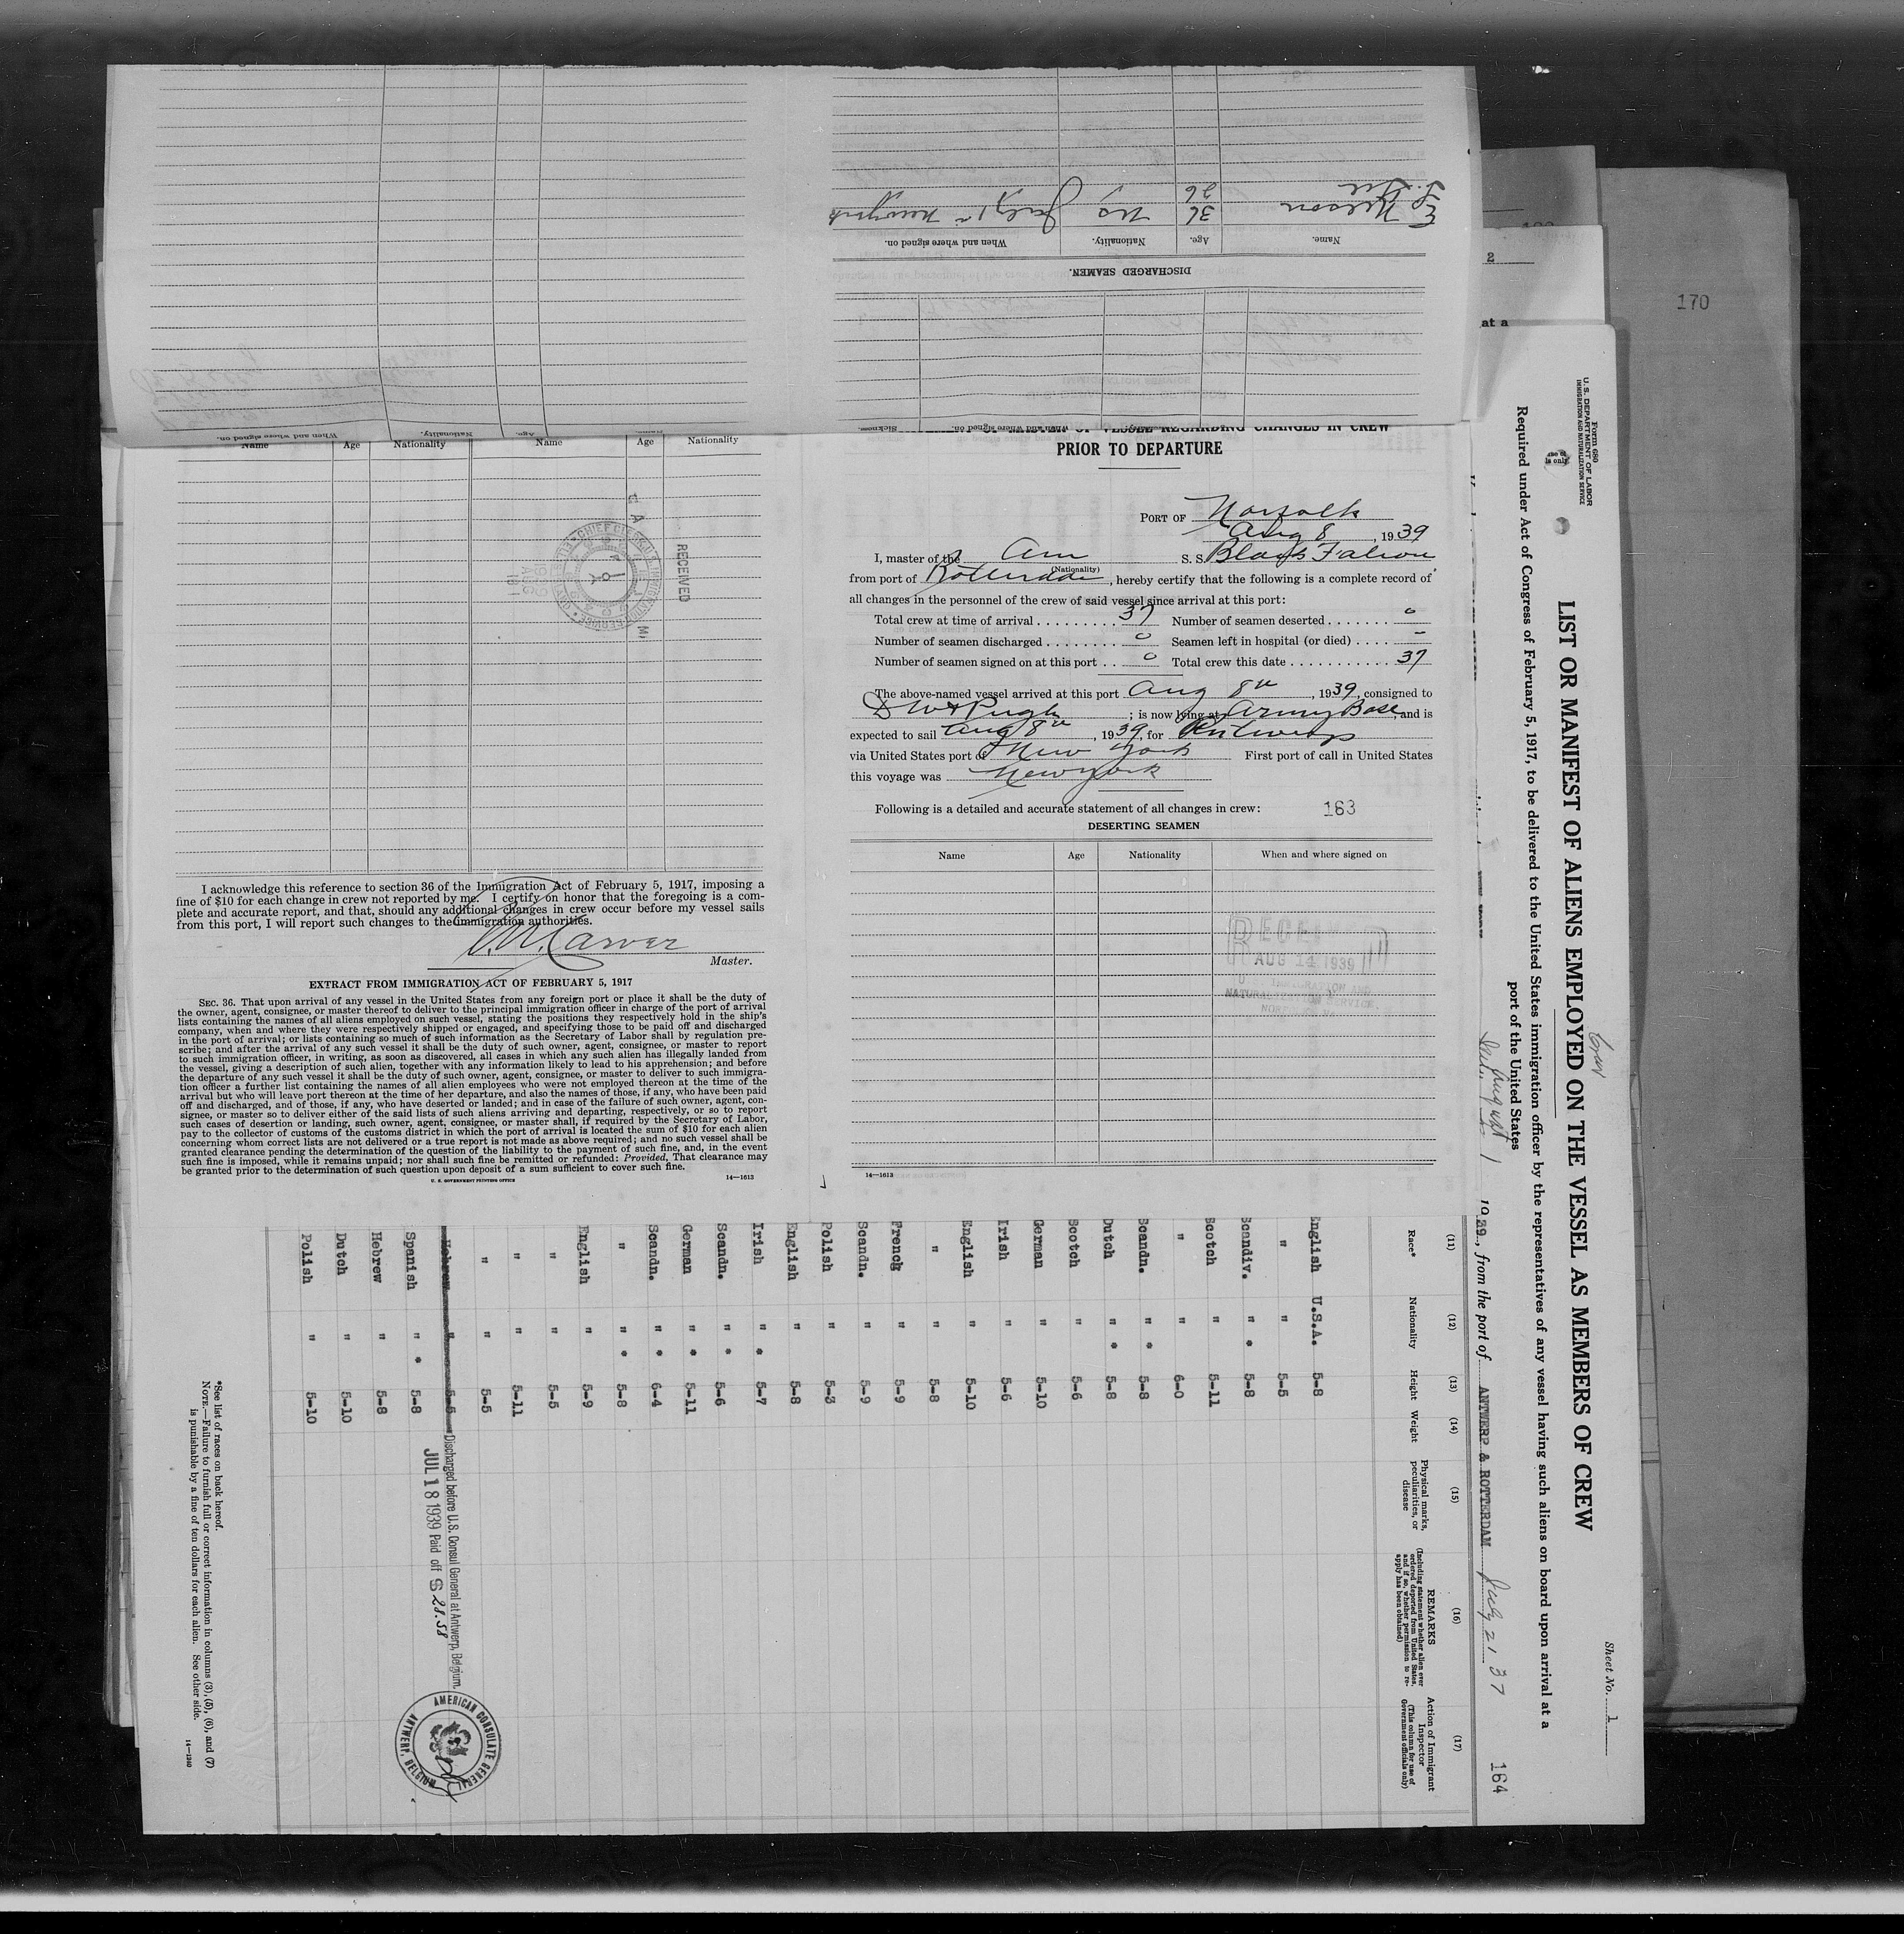 DISCHARGED SEAMEN.
Name.
Age.
Nationality.
When and where signed on.
E Nelson 36 US July 1st Newyork
26
Name
Age
Nationality
Name
Age
Nationality
RECEIVED
I acknowledge this reference to section 36 of the Immigration Act of February 5, 1917, imposing a
fine of $10 for each change in crew not reported by me. I certify on honor that the foregoing is a com-
plete and accurate report, and that, should any additional changes in crew occur before my vessel sails
from this port, I will report such changes to the immigration authorities.
Carver
Master.
EXTRACT FROM IMMIGRATION ACT OF FEBRUARY 5, 1917
SEC. 36. That upon arrival of any vessel in the United States from any foreign port or place it shall be the duty of
the owner, agent, consignee, or master thereof to deliver to the principal immigration officer in charge of the port of arrival
lists containing the names of all aliens employed on such vessel, stating the positions they respectively hold in the ship's
company, when and where they were respectively shipped or engaged, and specifying those to be paid off and discharged
in the port of arrival; or lists containing so much of such information as the Secretary of Labor shall by regulation pre-
scribe; and after the arrival of any such vessel it shall be the duty of such owner, agent, consignee, or master to report
to such immigration officer, in writing, as soon as discovered, all cases in which any such alien has illegally landed from
the vessel, giving a description of such alien, together with any information likely to lead to his apprehension; and before
the departure of any such vessel it shall be the duty of such owner, agent, consignee, or master to deliver to such immigra-
tion officer a further list containing the names of all alien employees who were not employed thereon at the time of the
arrival but who will leave port thereon at the time of her departure, and also the names of those, if any, who have been paid
off and discharged, and of those, if any, who have deserted or landed; and in case of the failure of such owner, agent, con-
signee, or master so to deliver either of the said lists of such aliens arriving and departing, respectively, or so to report
such cases of desertion or landing, such owner, agent, consignee, or master shall, if required by the Secretary of Labor,
pay to the collector of customs of the customs district in which the port of arrival is located the sum of $10 for each alien
concerning whom correct lists are not delivered or a true report is not made as above required; and no such vessel shall be
granted clearance pending the determination of the question of the liability to the payment of such fine, and, in the event
such fine is imposed, while it remains unpaid; nor shall such fine be remitted or refunded: Provided, That clearance may
be granted prior to the determination of such question upon deposit of a sum sufficient to cover such fine.
U. S. GOVERNMENT PRINTING OFFICE 14—1613
VESSEL REGARDING CHANGES IN CREW
PRIOR TO DEPARTURE
PORT OF Norfolk
Aug 8, 1939
I, master of the Am S. S. Black Falcon
(Nationality)
from port of Rotterdam, hereby certify that the following is a complete record of
all changes in the personnel of the crew of said vessel since arrival at this port:
Total crew at time of arrival 37 Number of seamen deserted 0
Number of seamen discharged 0 Seamen left in hospital (or died) –
Number of seamen signed on at this port 0 Total crew this date 37
The above-named vessel arrived at this port Aug 8th, 1939, consigned to
Pugh; is now lying at Army Base, and is
expected to sail Aug 8th, 1939, for Antwerp
via United States port of New York First port of call in United States
this voyage was Newyork
Following is a detailed and accurate statement of all changes in crew: 163
DESERTING SEAMEN
Name Age Nationality When and where signed on
RECEIVED
AUG 14 1939
IMMIGRATION AND
NATURALIZATION SERVICE
14—1613
170
2
at a
Form 680
U. S. DEPARTMENT OF LABOR
IMMIGRATION AND NATURALIZATION SERVICE
Sheet No. 1
LIST OR MANIFEST OF ALIENS EMPLOYED ON THE VESSEL AS MEMBERS OF CREW
Required under Act of Congress of February 5, 1917, to be delivered to the United States immigration officer by the representatives of any vessel having such aliens on board upon arrival at a
port of the United States
August 1 1939, from the port of ANTWERP & ROTTERDAM July 21 37
164
(11) (12) (13) (14) (15) (16) (17)
Race* Nationality Height Weight Physical marks, peculiarities, or disease REMARKS (Including statement whether alien ever ordered deported from United States, and if so, whether permission to re-apply has been obtained) Action of Immigrant Inspector (This column for use of Government officials only)
English U.S.A. 5-8
" " 5-5
Scandiv. " * 5-8
Scotch " 5-11
" " 6-0
Scandn. " * 5-8
Dutch " * 5-8
Scotch " 5-6
German " 5-10
Irish " 5-6
English " 5-10
" " 5-8
French " 5-9
Scandn. " 5-9
Polish " 5-3
English " 5-8
Irish " * 5-7
Scandn. " * 5-6
German " * 5-11
Scandn. " * 6-4
" " * 5-8
English " 5-9
" " 5-5
" " 5-11
" " 5-5
Hebrew " 5-5 Discharged before U.S. Consul General at Antwerp, Belgium
JUL 18 1939 Paid off $ 28.58
Spanish " * 5-8
Hebrew " 5-8
Dutch " 5-10
Polish " 5-10
AMERICAN CONSULATE GENERAL
ANTWERP, BELGIUM
*See list of races on back hereof.
NOTE.—Failure to furnish full or correct information in columns (3), (5), (6), and (7)
is punishable by a fine of ten dollars for each alien. See other side.
14—1240